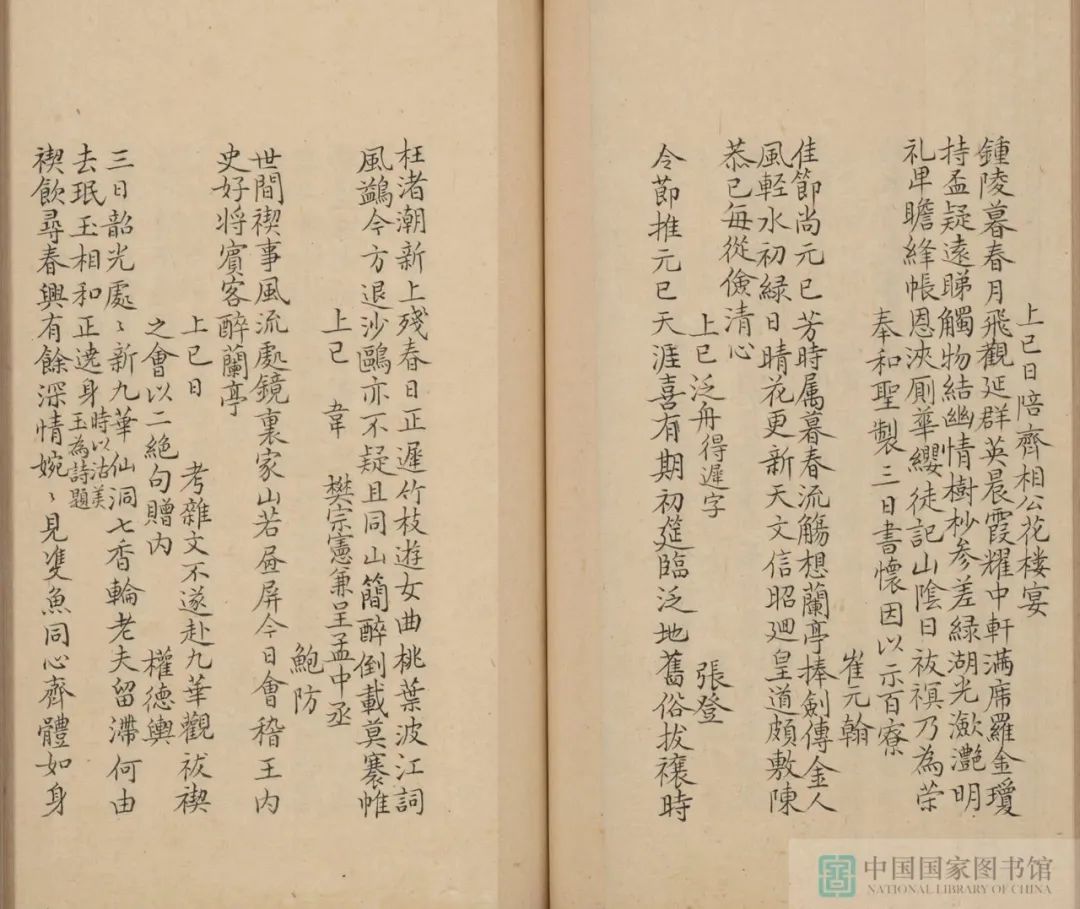 上巳日陪齊相公花樓宴
鍾陵暮春月飛觀延群英晨霞耀中軒滿席羅金瓊
持盃疑遠睇觸物結幽情樹杪參差綠湖光瀲灩明
礼卑瞻絳帳恩浹廁華纓徒記山陰日祓禊乃為荣
奉和聖製三日書懷因以示百寮
崔元翰
佳節尚元巳芳時属暮春流觴想蘭亭捧劍傳金人
風輕水初綠日晴花更新天文信昭廻皇道頗敷陳
恭已每從儉清心
上巳泛舟得遲字
張登
令節推元巳天涯喜有期初筵臨泛地舊俗拔禳時
枉渚潮新上殘春日正遲竹枝遊女曲桃葉波江詞
風鷁今方退沙鷗亦不疑且同山簡醉倒載莫褰帷
上巳 韋 樊宗憲兼呈孟中丞
鮑防
世間禊事風流處鏡裏家山若昼屏今日會稽王内
史好将賓客醉蘭亭
上巳日 考雜文不遂赴九華觀祓禊
之會以二絕句贈内
權德輿
三日韶光處〻新九華仙洞七香輪老夫留滯何由
去珉玉相和正遶身時以沽美玉為詩題
禊飲尋春興有餘深情婉〻見雙魚同心齊體如身
中国国家图书馆
NATIONAL LIBRARY OF CHINA